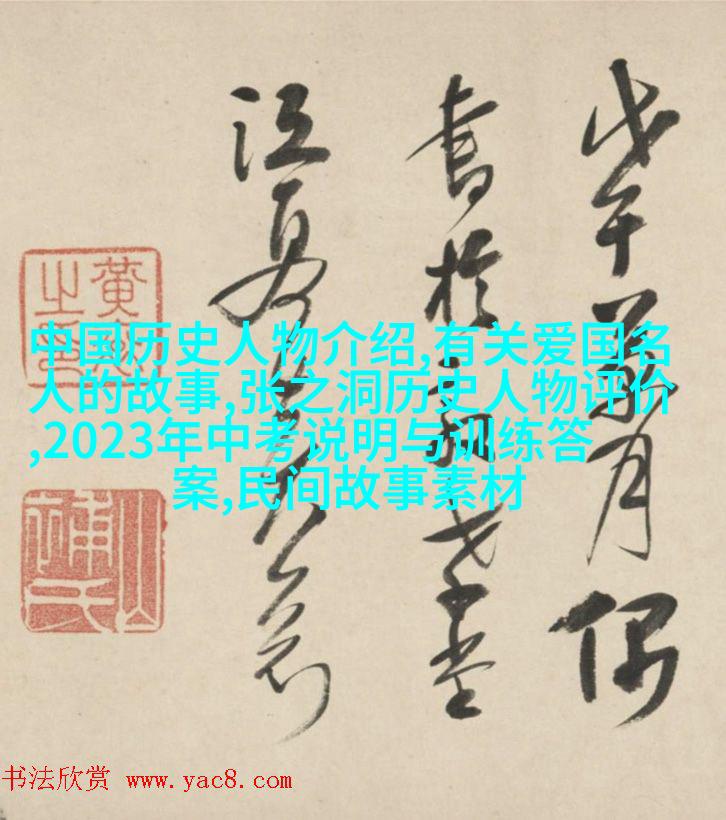 戊午月偶
書於堂
江夏
中国历史人物介绍,有关爱国名
人的故事,张之洞历史人物评价
,2023年中考说明与训练答
案,民间故事素材
书法欣赏 www.yac8.com